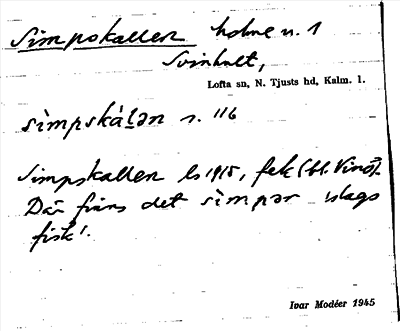 Simpskallen holme n. 1
Svinhult,
Lofta sn, N. Tjusts hd, Kalm. l.
sìmpskáḷən s. 116
Simpskallen ls 1915, fek (bl. Vinö).
Där finns det sìmpər slags
fisk.
Ivar Modéer 1945